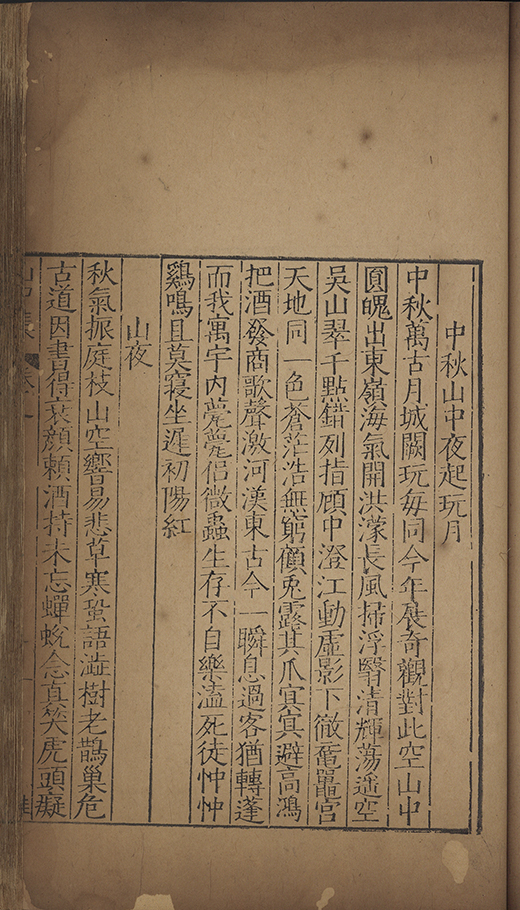 中秋山中夜起玩月
中秋萬古月城闕玩每同今年展奇觀對此空山中
圓魄出東嶺海氣開洪濛長風掃浮翳清輝蕩遥空
吳山翠千點錯列指顧中澄江動虛影下徹黿鼉宮
天地同一色蒼茫浩無窮顧兎露其爪宜宜避高鴻
把酒發商歌聲激河漢東古今一瞬息過客猶轉蓬
而我寓宇内薨薨侣微蟲生存不自樂溘死徒忡忡
鷄鳴且莫寢坐遲初陽紅
山夜
秋氣振庭枝山空響易悲草寒蛩語澁樹老鵲巢危
古道因書得衰顔頼酒持未忘蟬蛻念真笑虎頭癡